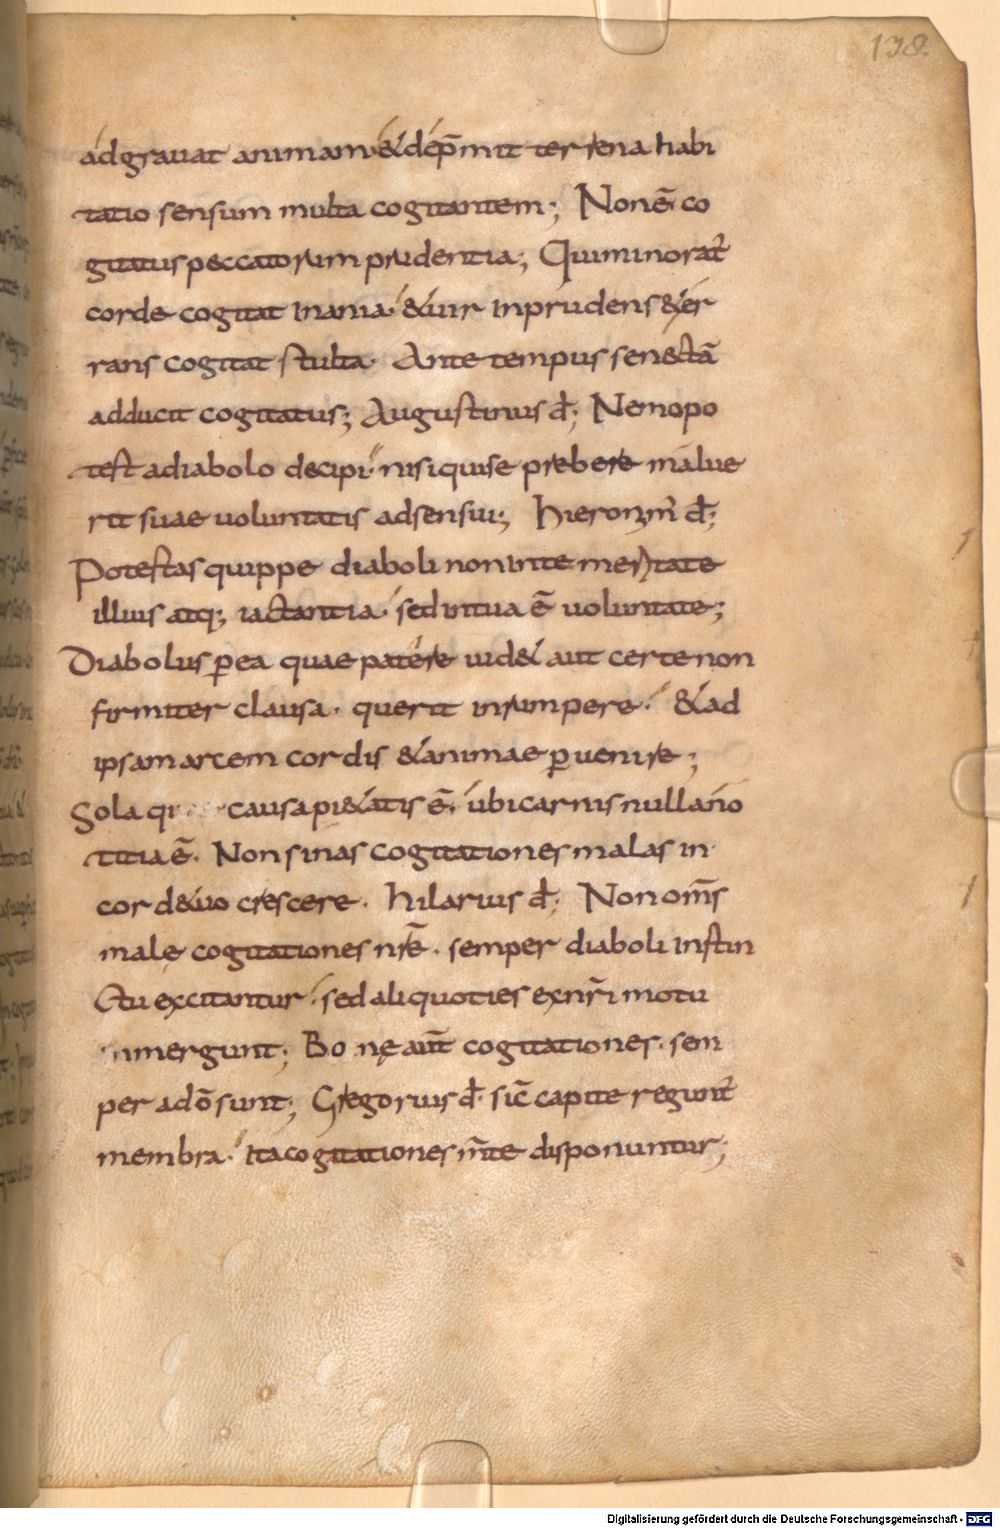 138.
adgrauat animam· & dep̄mit terrena habi
tatio sensum multa cogitantem; Non ē co
gitatus peccatorum prudentia; Qui minorat᷑
corde cogitat inania· & uir inprudens & er
rans cogitat stulta· Ante tempus senectā
adducit cogitatus; Augustinus dt̄; Nemo po
test a diabolo decipi· nisi qui se prebere malue
rit suae uoluntatis adsensui; Hieronim᷒ dt̄;
Potestas quippe diaboli non inte meritate
illius atq; iactantia· sed in tua ē uoluntate;
Diabolus p̱ ea quae patere uid& aut certe non
firmiter clausa· querit inrumpere· & ad
ipsam arcem cordis & animae p̱uenire;
Sola causa pi&atis ē· ubi carnis nulla no
titia ē· Non sinas cogitationes malas in
corde tuo crescere· Hilarius dt̄; Non om̄s
male cogitationes nr̄e· semper diaboli instin
ctu excitantur· sed aliquoties ex nr̄i motu
mergunt; Bonę aut̄ cogitationes· sem
per a dō sunt; Gregorius dt̄· sic̄ capite regunt᷑
membra· Ita cogitationes m̄te disponuntur;
Digitalisierung gefördert durch die Deutsche Forschungsgemeinschaft - DFG